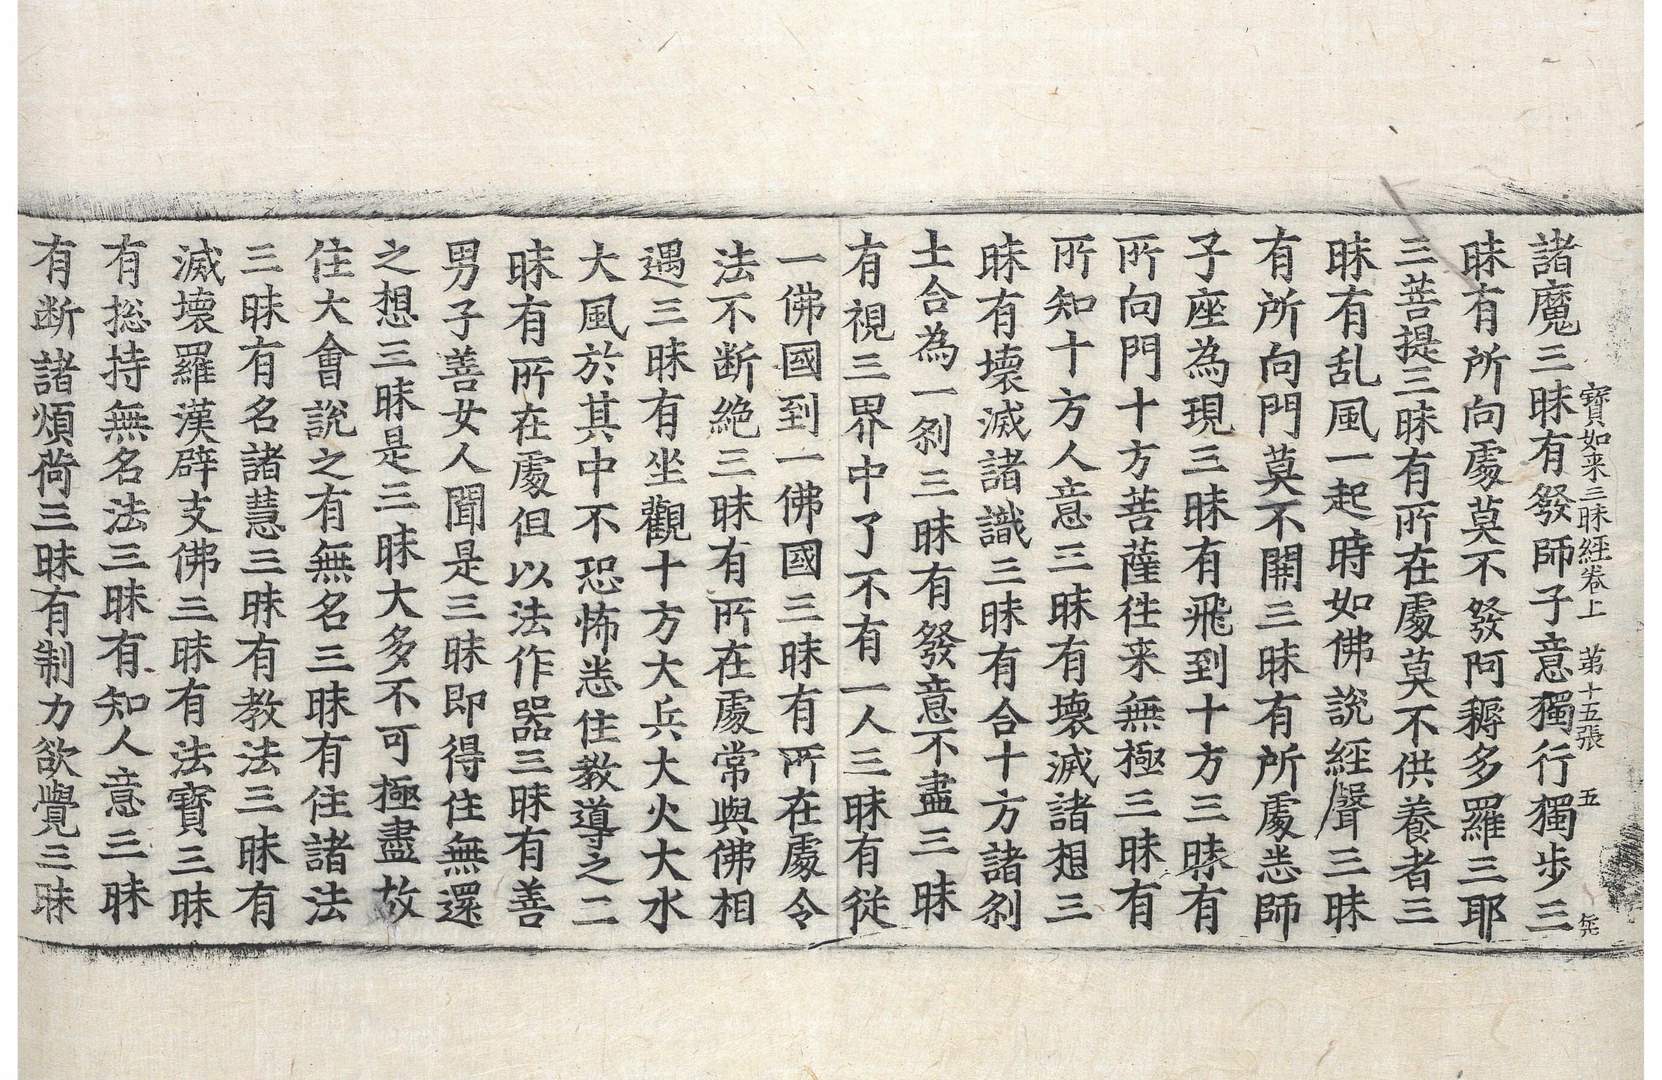 寶如来三昧経卷上 苐十五張 五
諸魔三昧有發師子意獨行獨歩三
昧有所向處莫不發阿耨多羅三耶
三菩提三昧有所在處莫不供養者三
昧有乱風一起時如佛說經聲三昧
有所向門莫不開三昧有所處悉師
子座為現三昧有飛到十方三昧有
所向門十方菩薩往来無極三昧有
所知十方人意三昧有壞滅諸想三
昧有壞滅諸識三昧有合十方諸刹
土合為一刹三昧有發意不盡三昧
有視三界中了不有一人三昧有從
一佛國到一佛國三昧有所在處令
法不断絶三昧有所在處常與佛相
遇三昧有坐觀十方大兵大火大水
大風於其中不恐怖悉住教導之二
昧有所在處但以法作器三昧有善
男子善女人聞是三昧即得住無還
之想三昧是三昧大多不可極盡故
住大會說之有無名三昧有住諸法
三昧有名諸慧三昧有教法三昧有
滅壞羅漢辟支佛三昧有法寶三昧
有捴持無名法三昧有知人意三昧
有断諸煩荷三昧有制力欲覺三昧